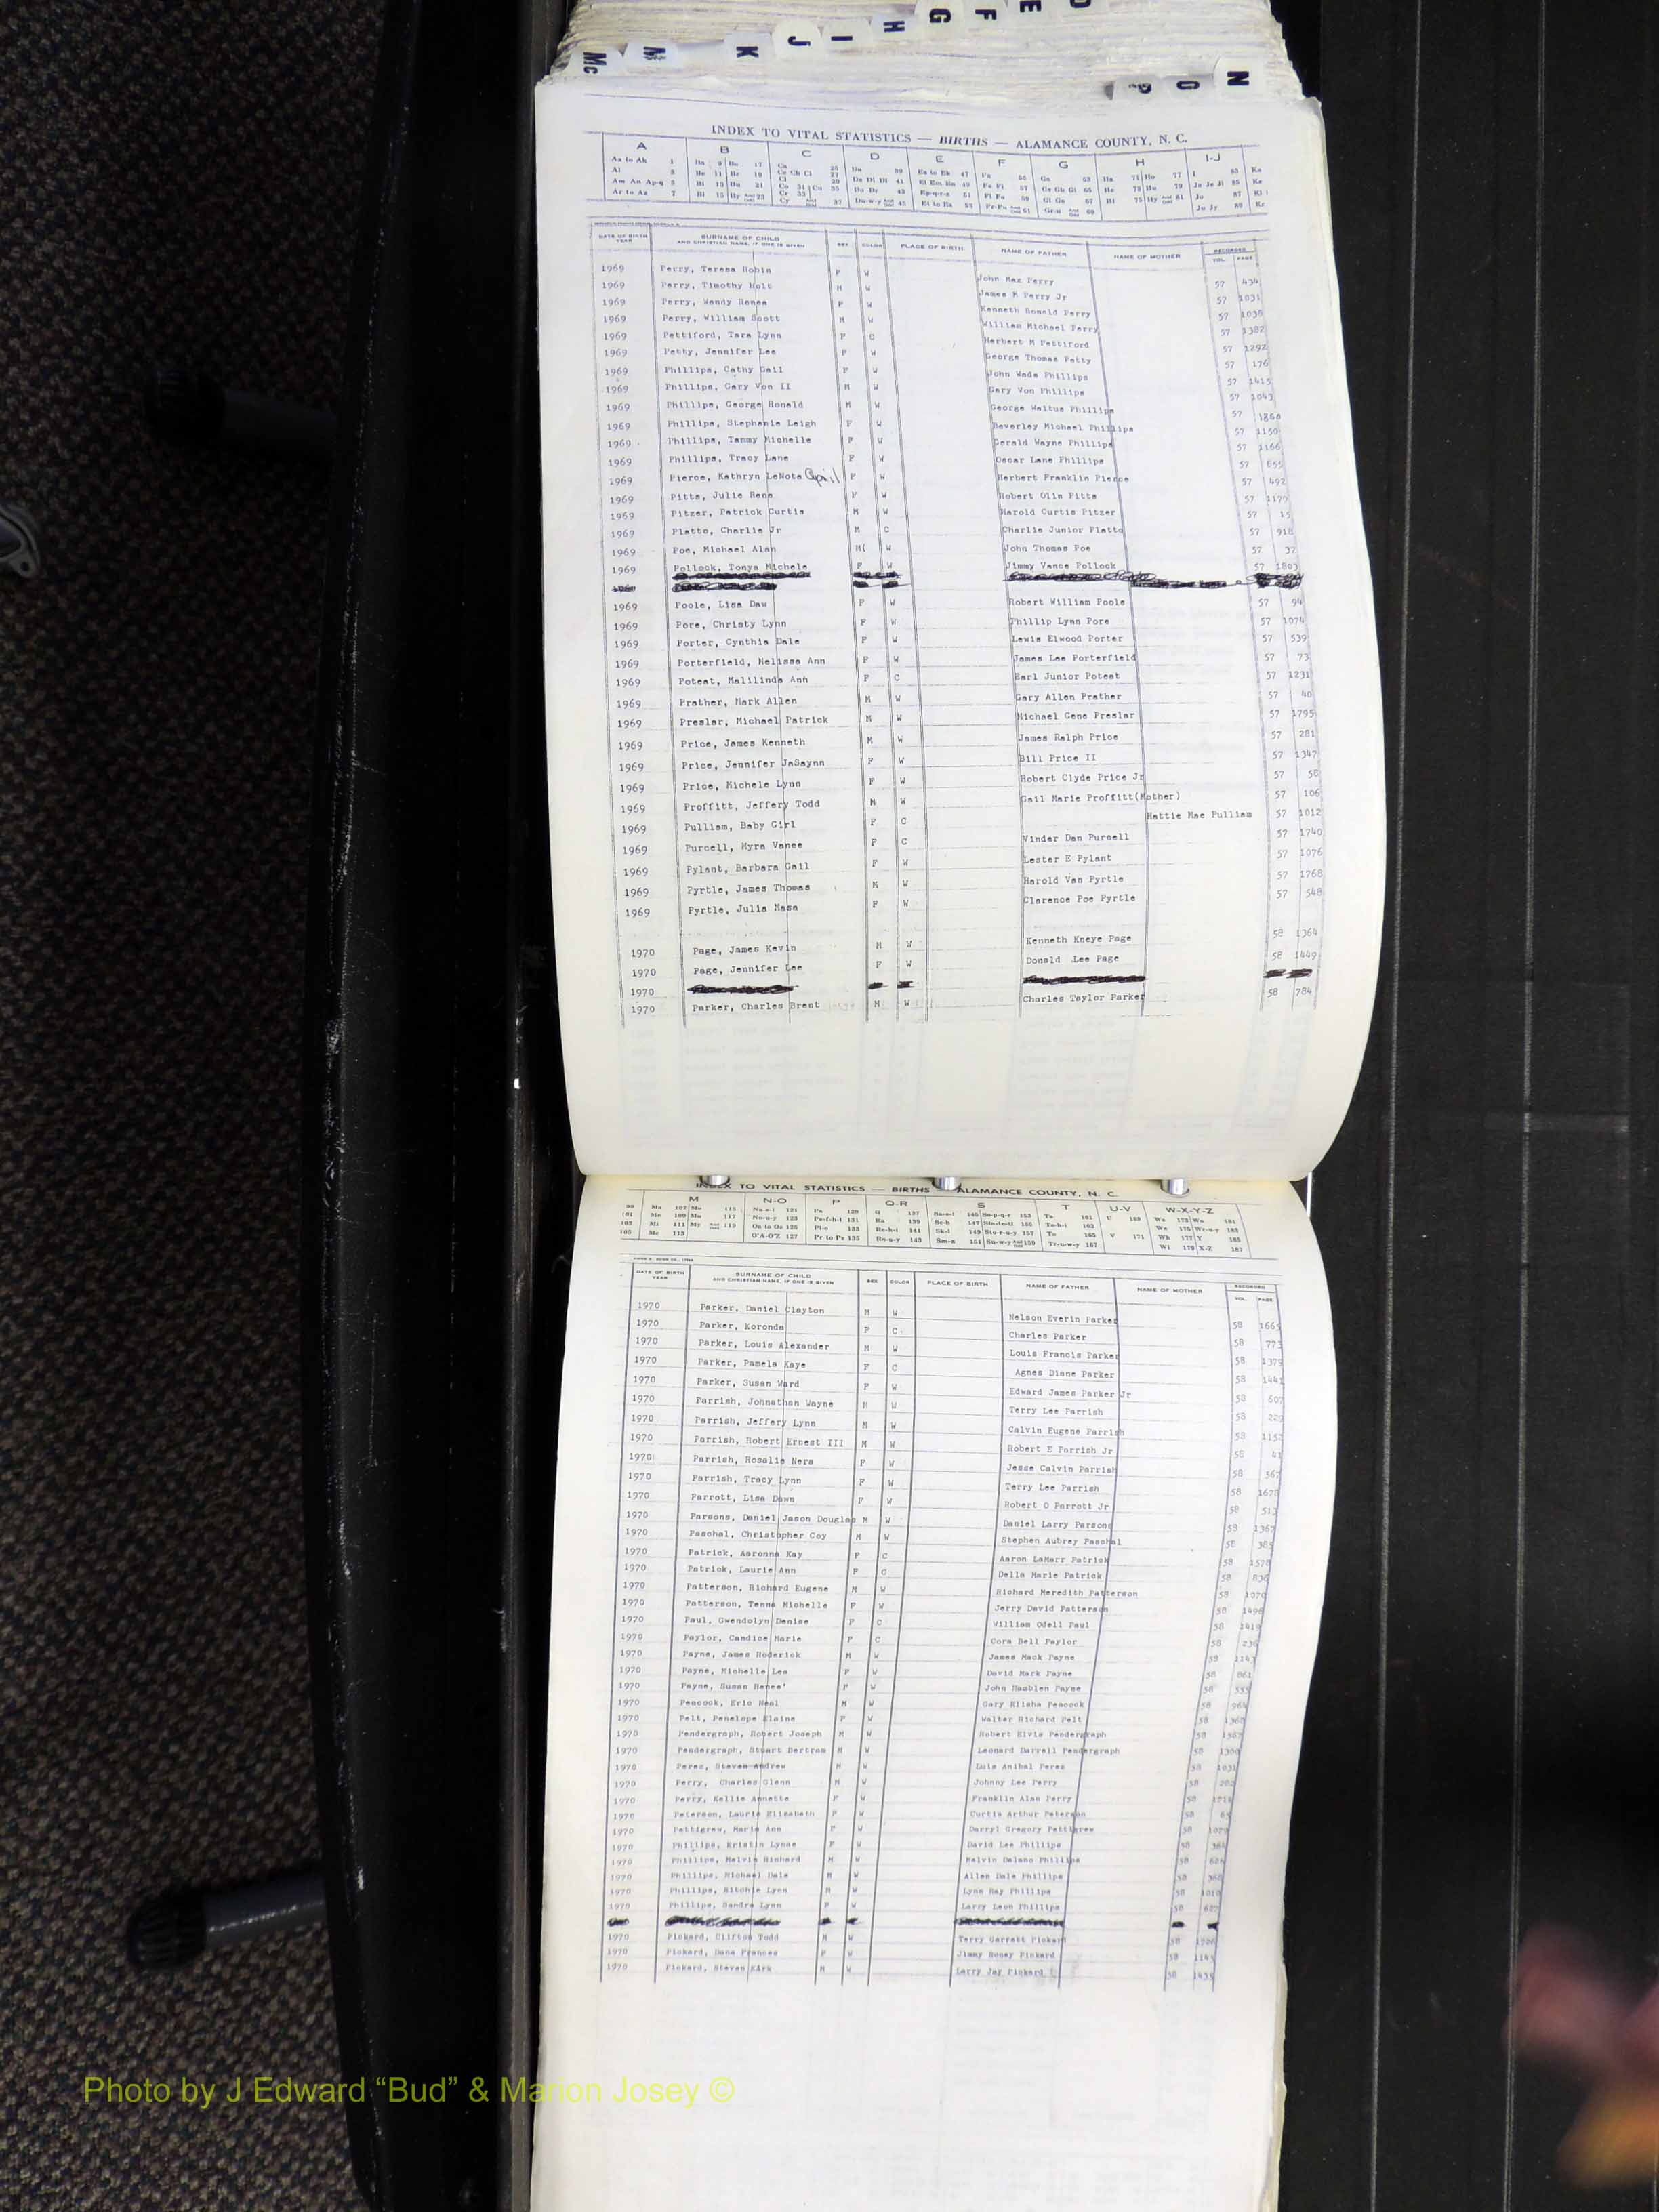 D
E
F
G
H
I
J
K
M
Mc
N
O
P
INDEX TO VITAL STATISTICS — BIRTHS — ALAMANCE COUNTY, N. C.
A B C D E F G H I-J
DATE OF BIRTH YEAR SURNAME OF CHILD AND CHRISTIAN NAME, IF ONE IS GIVEN SEX COLOR PLACE OF BIRTH NAME OF FATHER NAME OF MOTHER RECORDED VOL. PAGE
1969 Perry, Teresa Robin F W John Max Perry 57 434
1969 Perry, Timothy Holt M W James M Perry Jr 57 1031
1969 Perry, Wendy Renea F W Kenneth Ronald Perry 57 1036
1969 Perry, William Scott M W William Michael Perry 57 1382
1969 Pettiford, Tara Lynn F C Herbert M Pettiford 57 1292
1969 Petty, Jennifer Lee F W George Thomas Petty 57 176
1969 Phillips, Cathy Gail F W John Wade Phillips 57 1415
1969 Phillips, Gary Von II M W Gary Von Phillips 57 1043
1969 Phillips, George Ronald M W George Waitus Phillips 57 1860
1969 Phillips, Stephanie Leigh F W Beverley Michael Phillips 57 1150
1969 Phillips, Tammy Michelle F W Gerald Wayne Phillips 57 1166
1969 Phillips, Tracy Lane F W Oscar Lane Phillips 57 655
1969 Pierce, Kathryn LeNota April F W Herbert Franklin Pierce 57 492
1969 Pitts, Julie Rena F W Robert Olin Pitts 57 1179
1969 Pitzer, Patrick Curtis M W Harold Curtis Pitzer 57 15
1969 Platto, Charlie Jr M C Charlie Junior Platto 57 918
1969 Poe, Michael Alan M( W John Thomas Poe 57 37
1969 Pollock, Tonya Michele F W Jimmy Vance Pollock 57 1803
1969 Poole, Lisa Daw F W Robert William Poole 57 94
1969 Pore, Christy Lynn F W Phillip Lynn Pore 57 1074
1969 Porter, Cynthia Dale F W Lewis Elwood Porter 57 539
1969 Porterfield, Melissa Ann F W James Lee Porterfield 57 73
1969 Poteat, Malilinda Ann F C Earl Junior Poteat 57 1231
1969 Prather, Mark Allen M W Gary Allen Prather 57 40
1969 Preslar, Michael Patrick M W Michael Gene Preslar 57 1795
1969 Price, James Kenneth M W James Ralph Price 57 281
1969 Price, Jennifer JaSaynn F W Bill Price II 57 1347
1969 Price, Michele Lynn F W Robert Clyde Price Jr 57 58
1969 Proffitt, Jeffery Todd M W Gail Marie Proffitt(Mother) 57 106
1969 Pulliam, Baby Girl F C Hattie Mae Pulliam 57 1012
1969 Purcell, Myra Vance F C Vinder Dan Purcell 57 1740
1969 Pylant, Barbara Gail F W Lester E Pylant 57 1076
1969 Pyrtle, James Thomas M W Harold Van Pyrtle 57 1768
1969 Pyrtle, Julia Masa F W Clarence Poe Pyrtle 57 548
1970 Page, James Kevin M W Kenneth Kneye Page 58 1364
1970 Page, Jennifer Lee F W Donald Lee Page 58 1449
1970
1970 Parker, Charles Brent M W Charles Taylor Parker 58 784
INDEX TO VITAL STATISTICS — BIRTHS ALAMANCE COUNTY, N. C.
M N-O P Q-R S T U-V W-X-Y-Z
DATE OF BIRTH YEAR SURNAME OF CHILD AND CHRISTIAN NAME, IF ONE IS GIVEN SEX COLOR PLACE OF BIRTH NAME OF FATHER NAME OF MOTHER RECORDED VOL. PAGE
1970 Parker, Daniel Clayton M W Nelson Everin Parker 58 1665
1970 Parker, Koronda F C Charles Parker 58 773
1970 Parker, Louis Alexander M W Louis Francis Parker 58 1379
1970 Parker, Pamela Kaye F C Agnes Diane Parker 58 1441
1970 Parker, Susan Ward F W Edward James Parker Jr 58 607
1970 Parrish, Johnathan Wayne M W Terry Lee Parrish 58 229
1970 Parrish, Jeffery Lynn M W Calvin Eugene Parrish 58 1152
1970 Parrish, Robert Ernest III M W Robert E Parrish Jr 58 41
1970 Parrish, Rosalie Nera F W Jesse Calvin Parrish 58 567
1970 Parrish, Tracy Lynn F W Terry Lee Parrish 58 1678
1970 Parrott, Lisa Dawn F W Robert O Parrott Jr 58 513
1970 Parsons, Daniel Jason Douglas M W Daniel Larry Parsons 58 1367
1970 Paschal, Christopher Coy M W Stephen Aubrey Paschal 58 385
1970 Patrick, Aaronna Kay F C Aaron LaMarr Patrick 58 1578
1970 Patrick, Laurie Ann F C Della Marie Patrick 58 836
1970 Patterson, Richard Eugene M W Richard Meredith Patterson 58 1070
1970 Patterson, Tenna Michelle F W Jerry David Patterson 58 1496
1970 Paul, Gwendolyn Denise F C William Odell Paul 58 1419
1970 Paylor, Candice Marie F C Cora Bell Paylor 58 236
1970 Payne, James Roderick M W James Mack Payne 58 1143
1970 Payne, Michelle Lea F W David Mark Payne 58 861
1970 Payne, Susan Renee' F W John Hamblen Payne 58 555
1970 Peacock, Eric Neal M W Gary Elisha Peacock 58 964
1970 Pelt, Penelope Elaine F W Walter Richard Pelt 58 1368
1970 Pendergraph, Robert Joseph M W Robert Elvis Pendergraph 58
1970 Pendergraph, Stuart Bertram M W Leonard Darrell Pendergraph 58 1300
1970 Perez, Steven Andrew M W Luis Anibal Perez 58 1031
1970 Perry, Charles Glenn M W Johnny Lee Perry 58 202
1970 Perry, Kellie Annette F W Franklin Alan Perry 58 1711
1970 Peterson, Laurie Elizabeth F W Curtis Arthur Peterson 58 65
1970 Pettigrew, Maria Ann F W Darryl Gregory Pettigrew 58 1079
1970 Phillips, Kristin Lynae F W David Lee Phillips 58 364
1970 Phillips, Melvin Richard M W Melvin Delano Phillips 58 625
1970 Phillips, Michael Dale M W Allen Dale Phillips 58 368
1970 Phillips, Ritchie Lynn M W Lynn Ray Phillips 58 1010
1970 Phillips, Sandra Lynn F W Larry Leon Phillips 58 627
1970 Pickard, Clifton Todd M W Terry Garrett Pickard 58 1706
1970 Pickard, Dana Frances F W Jimmy Roney Pickard 58 1145
1970 Pickard, Steven Kirk M W Larry Jay Pickard 58 1435
Photo by J Edward “Bud” & Marion Josey ©